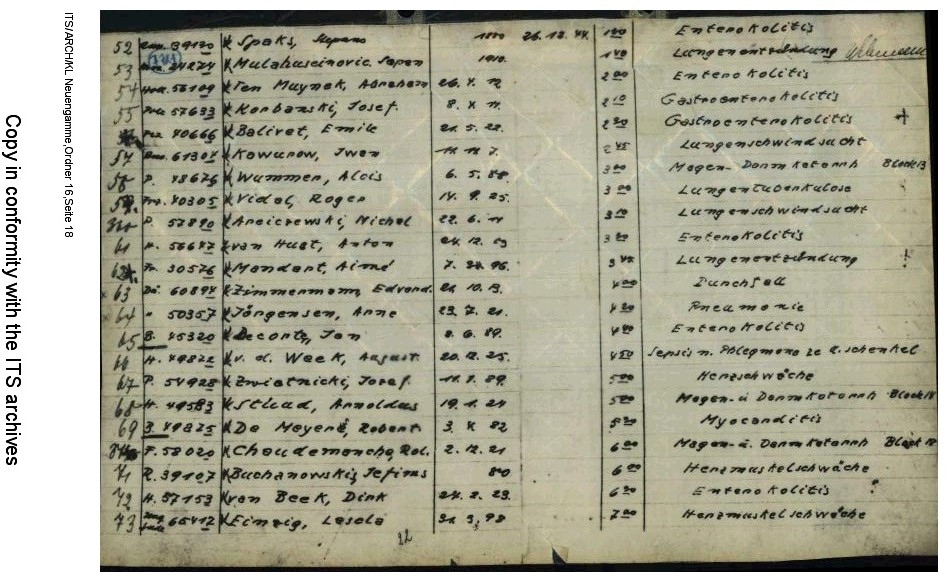 Copy in conformity with the ITS archives
ITS/ARCH/KL Neuengamme, Ordner 16, Seite 18
52 39120 Spaks, 26.12.44. 1 00 Enterokolitis
53 24274 Mulahuseinovic 1910. 1 40 Lungenentzündung
54 Ten Muynek, Abraham 26. 4. 12 2 00 Enterokolitis
55 57633 Korbanski, Josef. 8. X 11. 2 10 Gastroenterokolitis
40666 Balivet, Emile 21. 5. 22. 2 30 Gastroenterokolitis +
57 61307 Kowunow, Iwan 11. 11 7. 2 45 Lungenschwindsucht
58 P. 48676 Wummen, Alois 6. 5. 3 00 Magen-Darmkatarrh Block 13
40305 Vidal, Roger 14. 9. 25. 3 00 Lungentuberkulose
P. 57890 Michel 22. 6. 11 3 10 Lungenschwindsucht
61 H. 56647 van Huet, Anton 24. 12. 03 3 30 Enterokolitis
Fr. 30576 Mondant, Aimé 7. 96. 3 45 Lungenentzündung
63 60894 Zimmermann, Edvard. 21. 10. 13. 4 00 Durchfall
64 " 50357 Jörgensen, Anne 23. 7. 21. 4 20 Pneumonie
65 B. 45320 Decorte, Jan 8. 6. 89. Enterokolitis
66 H. 49822 v. d. Week, August 20. 12. 25. 4 50 Sepsis n. Phlegmone re O. schenkel
67 P. 54928 Zwiatnicki, Josef. 11. 7. 89. 5 00 Herzschwäche
68 H. 49583 Stuud, Arnoldus 19. 1. 24 Magen- u Darmkatarrh
69 B. 49825 De Meyere, Robert 3. 4 82 5 30 Myocarditis
F. 58020 Choudemanche, Rol. 2. 12. 21 6 00 Magen- u. Darmkatarrh
71 R. 39107 Buchanowskis, Jefims 80 6 00 Herzmuskelschwäche
72 H. 57153 van Beek, Dirk 24. 2. 23. 6 30 Enterokolitis
73 65412 Einzig, Lascla 31. 3. 98 7 00 Herzmuskelschwäche
22